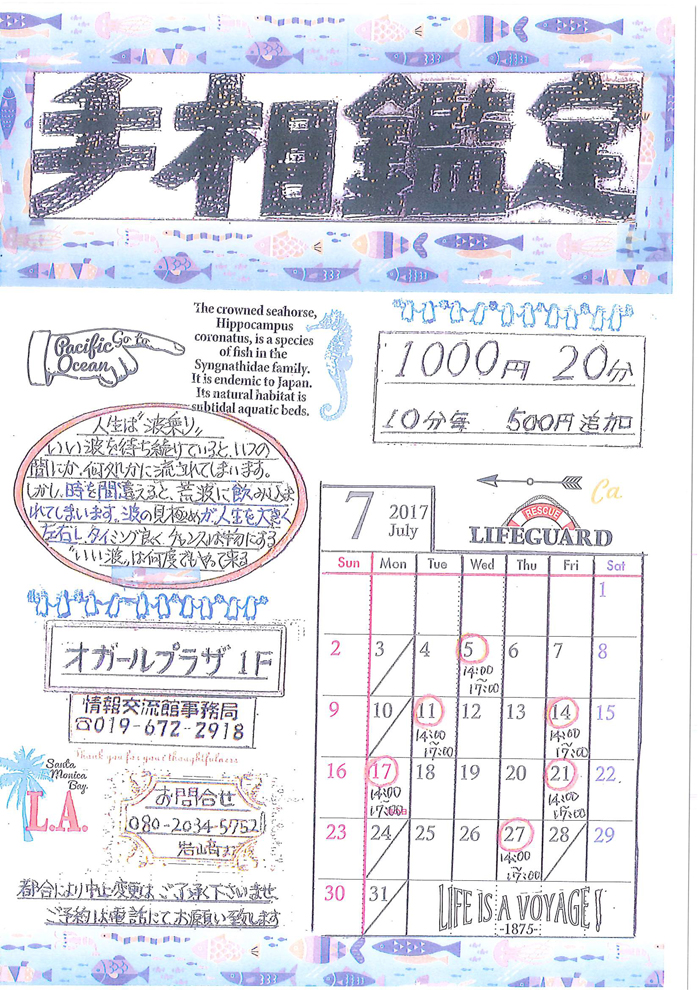 手相鑑定
The crowned seahorse,
Hippocampus
coronatus, is a species
of fish in the
Syngnathidae family.
It is endemic to Japan.
Its natural habitat is
subtidal aquatic beds.
Go to
Pacific
Ocean
1000円 20分
10分毎 500円追加
人生は"波乗り"
いい波を待ち続けていると、いつの
間にか、何処かに流されてしまいます。
しかし、時を間違えると、荒波に飲み込ま
れてしまいます。波の見極めが人生を大きく
左右し、タイミング良く、チャンスは物にする
"いい波"は何度でもやって来る
オガールプラザ 1F
情報交流館事務局
☎019-672-2918
Thank you for your thoughtfulness
Santa
Monica
Bay.
L.A.
お問合せ
080-2034-5752
都合により中止、変更は、ご了承下さいませ
ご予約は電話にてお願い致します
Ca
RESCUE
LIFEGUARD
7 2017
July
Sun Mon Tue Wed Thu Fri Sat
1
2 3 4 5 6 7 8
14:00
〜17:00
9 10 11 12 13 14 15
14:00 14:00
〜17:00 〜17:00
16 17 18 19 20 21 22
14:00 14:00
〜17:00 〜17:00
23 24 25 26 27 28 29
14:00
〜17:00
30 31
LIFE IS A VOYAGE!
-1875-